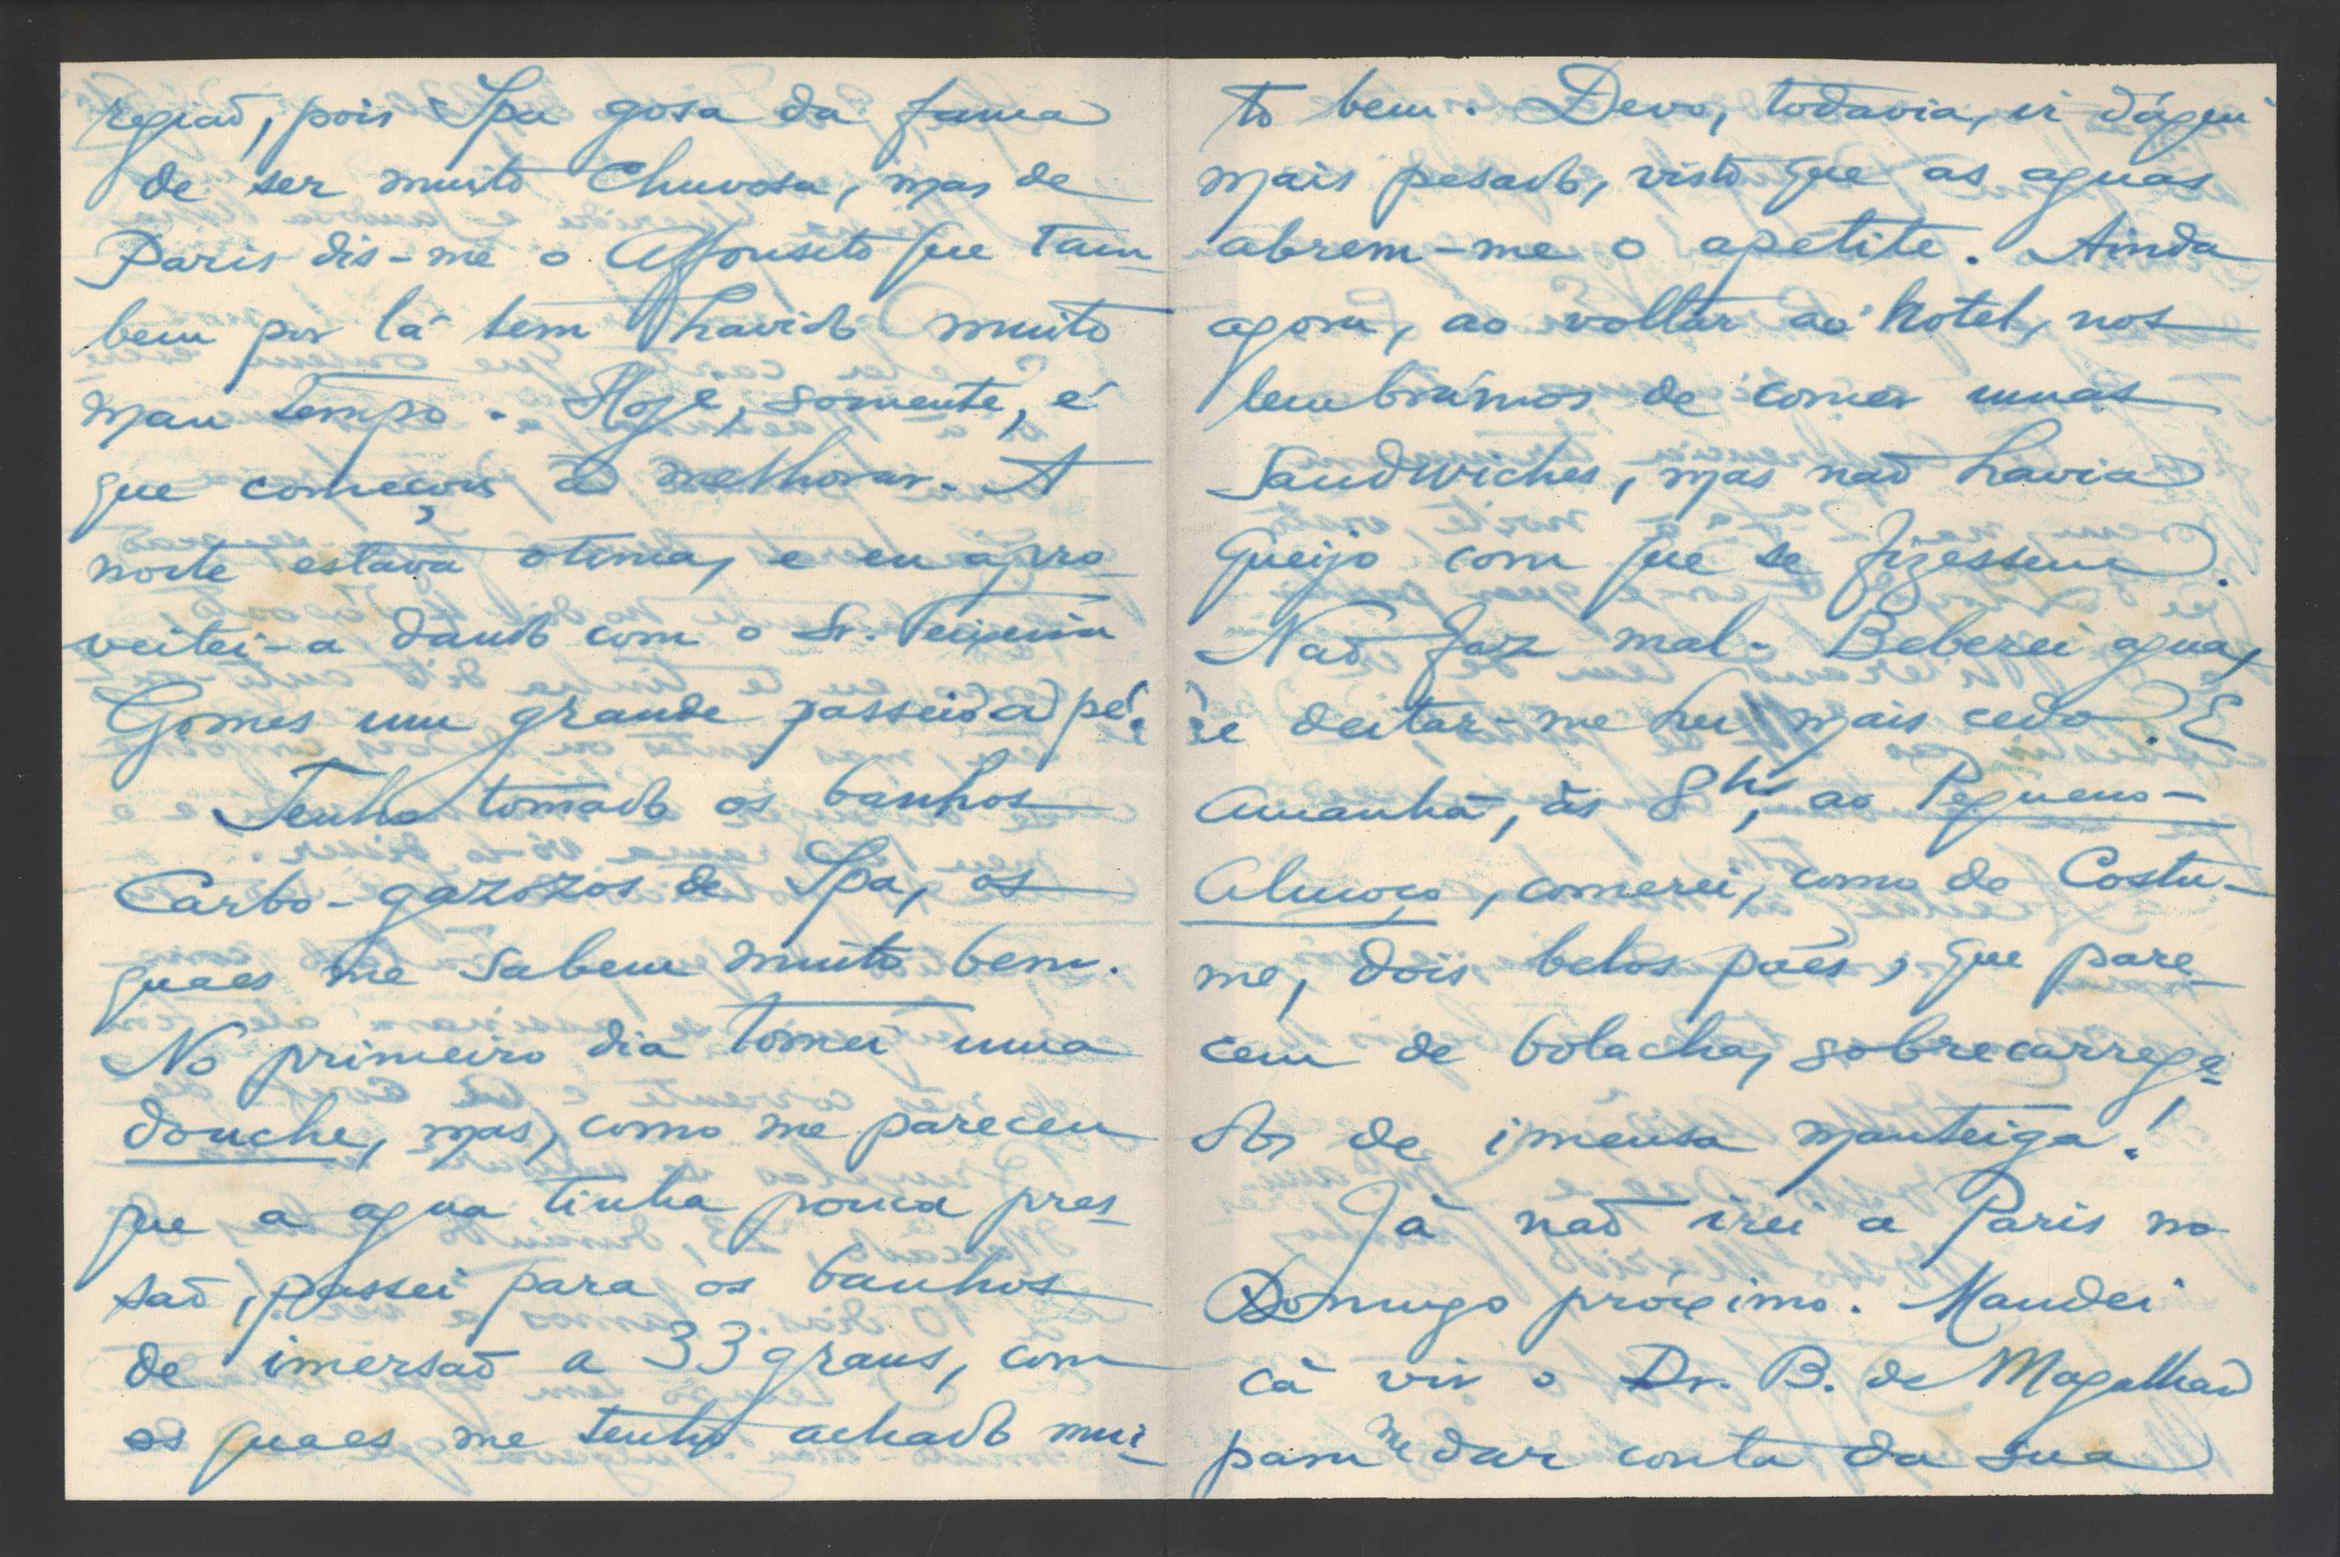 região, pois Spa gosa da fama
de ser muito chuvosa, mas de
Paris dis-me o Affonsito que tam-
bem por lá tem havido muito
mau tempo. Hoje, somente, é
que começou a melhorar. A
noite estava otima, e eu apro-
veitei-a dando com o Sr. Teixeira
Gomes um grande passeio a pé.
Tenho tomado os banhos
Carbo-gazozos de Spa, os
quaes me sabem muito bem.
No primeiro dia tomei uma
douche, mas, como me pareceu
que a agua tinha pouca pres-
são, passei para os banhos
de imersão a 33 graus, com
os quaes me tenho achado mui-
to bem. Devo, todavia, ir d'aqui
mais pesado, visto que as aguas
abrem-me o apetite. Ainda
agora, ao voltar ao hotel, nos
lembrámos de comer umas
Sandwiches, mas não havia
queijo com que se fizessem.
Não faz mal. Beberei agua,
e deitar-me hei mais cedo. E
amanhã, às 8hs, ao Pequeno-
almoço, comerei, como de Costu-
me, dois belos pães, que pare-
cem de bolacha, sobrecarrega-
dos de imensa manteiga!
Já não irei a Paris no
Domingo próximo. Mandei
cá vir o Dr. B. de Magalhães
para me dar conta da sua